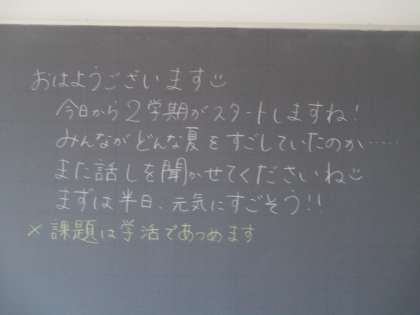 おはようございます☺
今日から2学期がスタートしますね!
みんながどんな夏をすごしていたのか……
また話しを聞かせてくださいね☺
まずは半日、元気にすごそう!!
×課題は学活であつめます